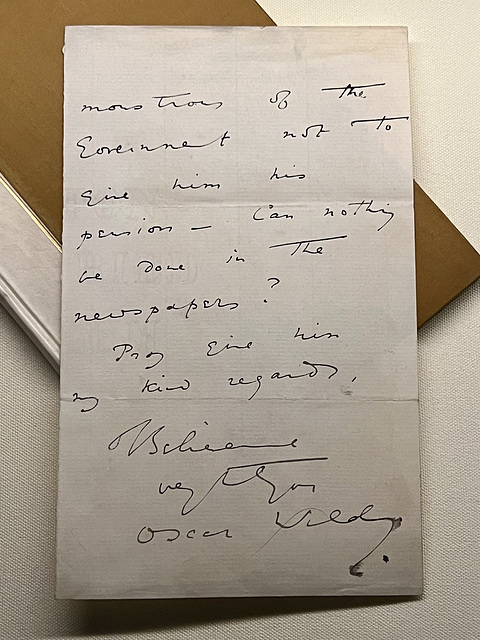 monstrous of the
Government not to
give him his
pension — Can nothing
be done in the
newspapers?
Pray give him
my kind regards,
Believe me
very truly yours
Oscar Wilde